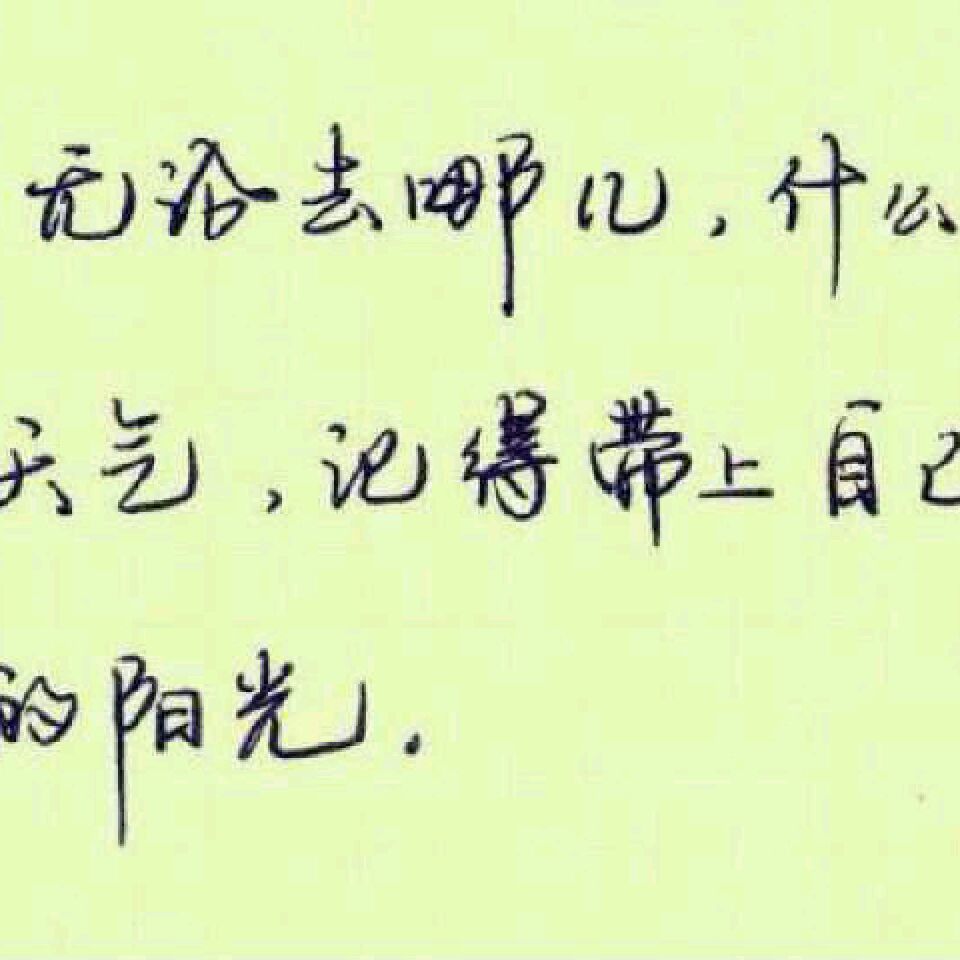 无论去哪儿，什么
天气，记得带上自己
的阳光.